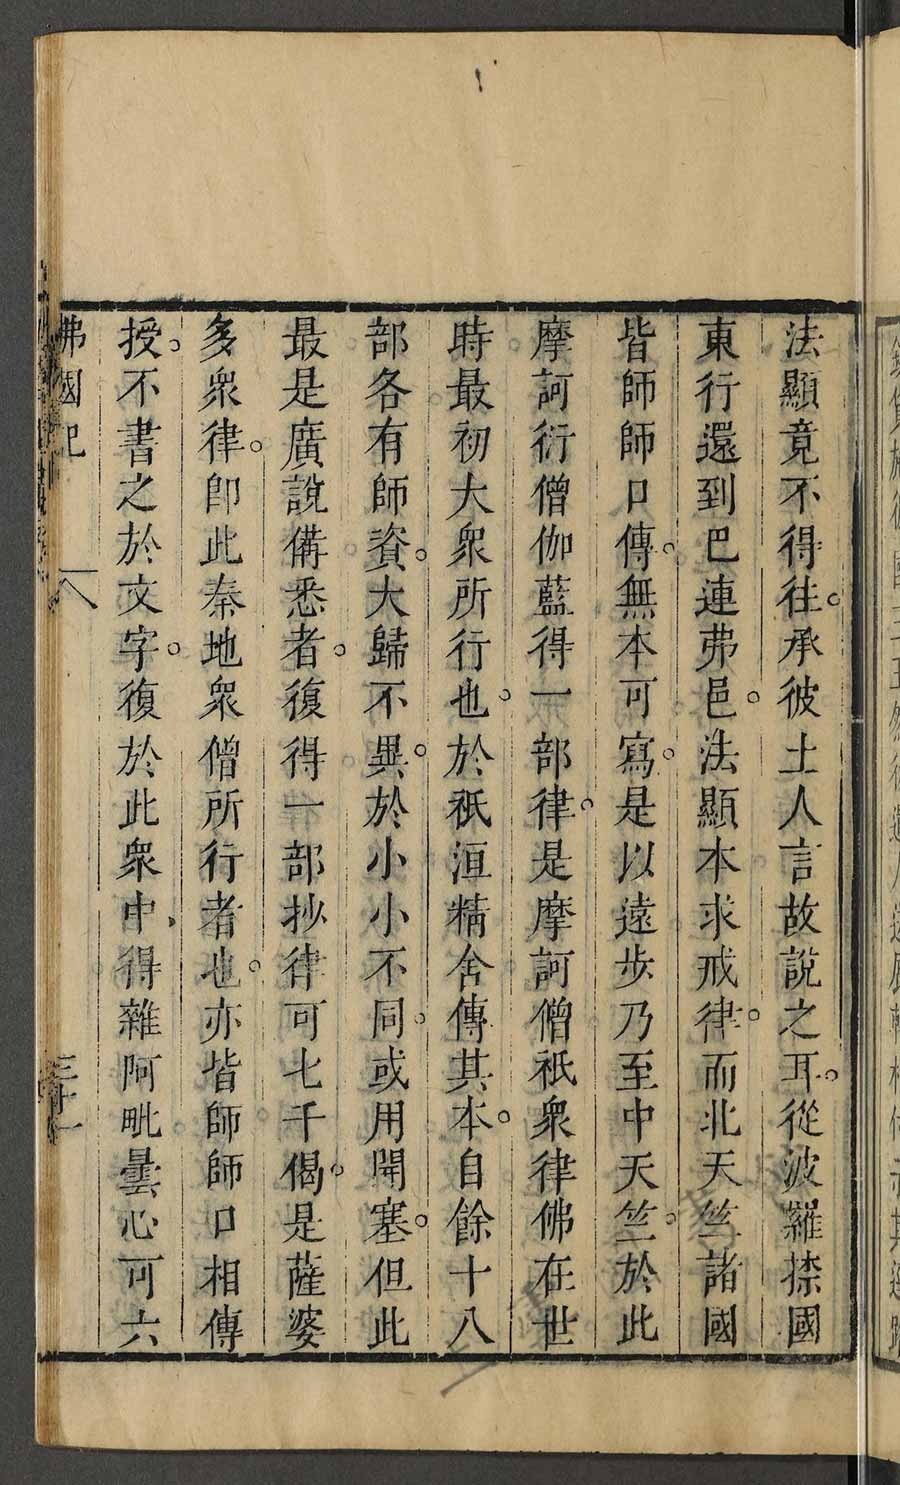 法顯竟不得往。承彼土人言故說之耳。從波羅㮈國
東行還到巴連弗邑。法顯本求戒律。而北天竺諸國
皆師師口傳。無本可寫。是以遠步乃至中天竺。於此
摩訶衍僧伽藍得一部律。是摩訶僧祇衆律佛在世
時最初大衆所行也。於祇洹精舍傳其本。自餘十八
部各有師資。大歸不異。於小小不同。或用開塞。但此
最是廣說備悉者。復得一部抄律可七千偈。是薩婆
多衆律。即此秦地衆僧所行者也。亦皆師師口相傳
授。不書之於文字。復於此衆中、得雜阿毗曇心可六
佛國記
三十一